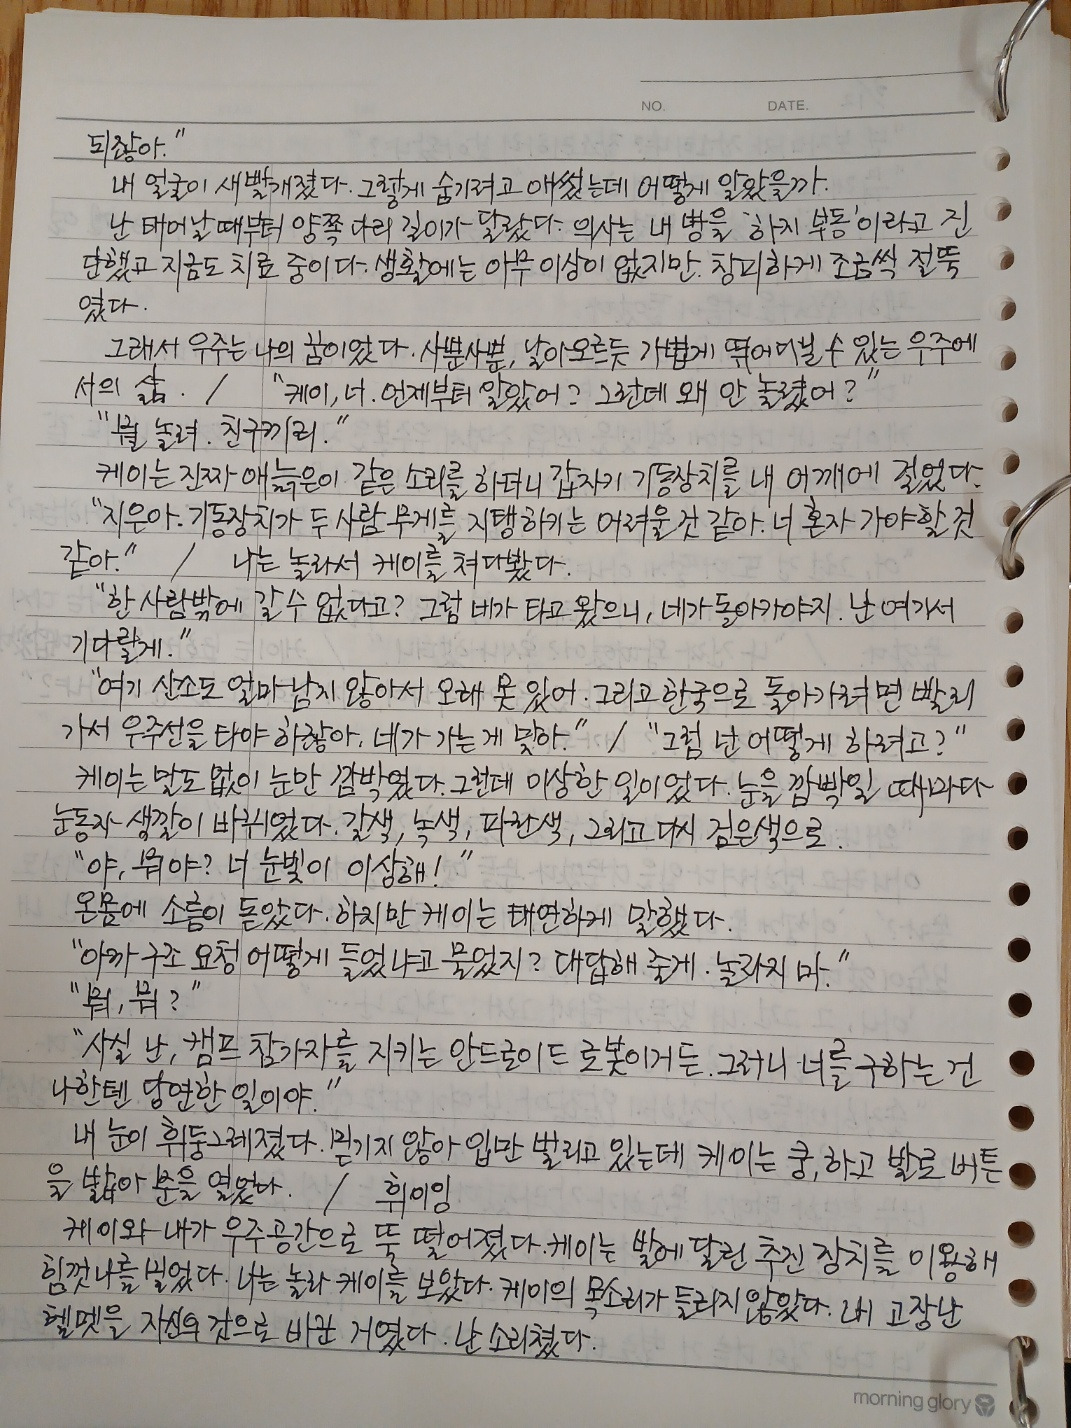 NO. DATE.
되잖아."
내 얼굴이 새빨개졌다. 그렇게 숨기려고 애썼는데 어떻게 알았을까.
난 태어날 때부터 양쪽 다리 길이가 달랐다. 의사는 내 병을 '하지 부동'이라고 진
단했고 지금도 치료 중이다. 생활에는 아무 이상이 없지만, 창피하게 조금씩 절뚝
였다.
그래서 우주는 나의 꿈이었다. 사뿐사뿐, 날아오르듯 가볍게 뛰어다닐 수 있는 우주에
서의 삶. / "케이, 너. 언제부터 알았어? 그런데 왜 안 놀렸어?"
"뭘 놀려. 친구끼리."
케이는 진짜 애늙은이 같은 소리를 하더니 갑자기 기동장치를 내 어깨에 걸었다.
"지우아. 기동장치가 두 사람 무게를 지탱하기는 어려울 것 같아. 너 혼자 가야 할 것
같아." / 나는 놀라서 케이를 쳐다봤다.
"한 사람밖에 갈 수 없다고? 그럼 네가 타고 왔으니, 네가 돌아가야지. 난 여기서
기다릴게."
"여기 산소도 얼마 남지 않아서 오래 못 있어. 그리고 한국으로 돌아가려면 빨리
가서 우주선을 타야 하잖아. 네가 가는 게 맞아." / "그럼 난 어떻게 하려고?"
케이는 말도 없이 눈만 깜박였다. 그런데 이상한 일이었다. 눈을 깜빡일 때마다
눈동자 색깔이 바뀌었다. 갈색, 녹색, 파란색, 그리고 다시 검은색으로.
"야, 뭐야? 너 눈빛이 이상해!"
온몸에 소름이 돋았다. 하지만 케이는 태연하게 말했다.
"아까 구조 요청 어떻게 들었냐고 물었지? 대답해 줄게. 놀라지 마."
"뭐, 뭐?"
"사실 난, 캠프 참가자를 지키는 안드로이드 로봇이거든. 그러니 너를 구하는 건
나한텐 당연한 일이야."
내 눈이 휘둥그레졌다. 믿기지 않아 입만 벌리고 있는데 케이는 쿵, 하고 발로 버튼
을 밟아 문을 열었다. / 휘이잉
케이와 내가 우주공간으로 뚝 떨어졌다. 케이는 발에 달린 추진 장치를 이용해
힘껏 나를 밀었다. 나는 놀라 케이를 보았다. 케이의 목소리가 들리지 않았다. 내 고장난
헬멧을 자신의 것으로 바꾼 거였다. 난 소리쳤다.
morning glory